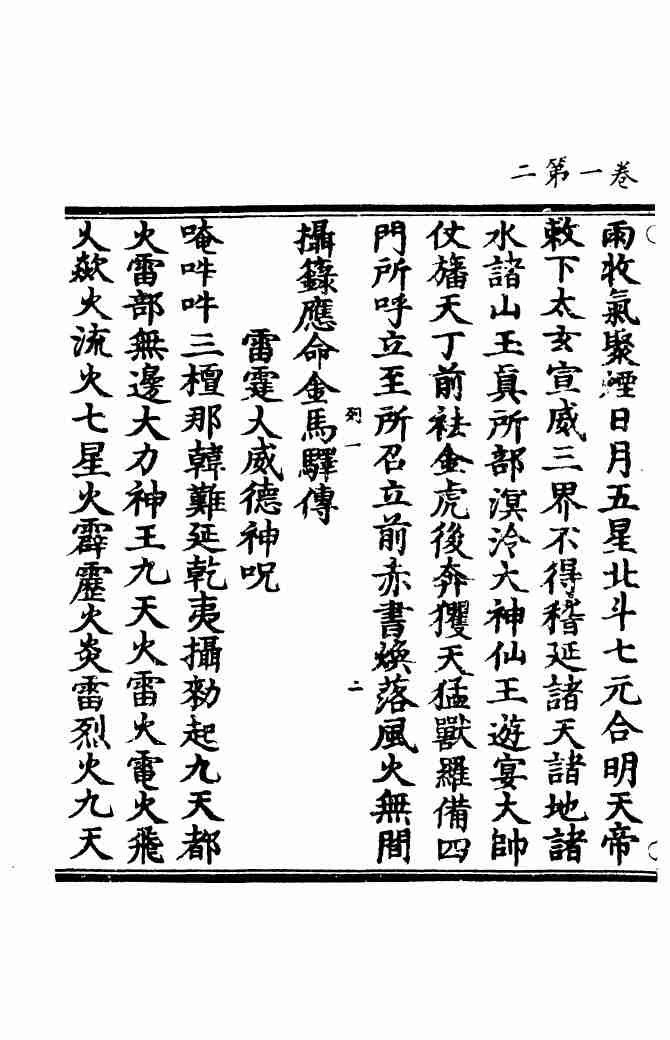 二第一卷
雨收氣聚煙日月五星北斗七元合明天帝
敕下太玄宣威三界不得稽延諸天諸地諸
水諸山玉真所部溟泠大神仙王遊宴大帥
仗旛天丁前袪金虎後奔玃天猛獸羅備四
門所呼立至所召立前赤書煥落風火無間
攝籙應命金馬驛傳
列一
二
雷霆大威德神呪
唵吽吽三檀那韓難延乾夷攝勑起九天都
火雷部無邊大力神王九天火雷火電火飛
火歘火流火七星火霹靂火炎雷烈火九天